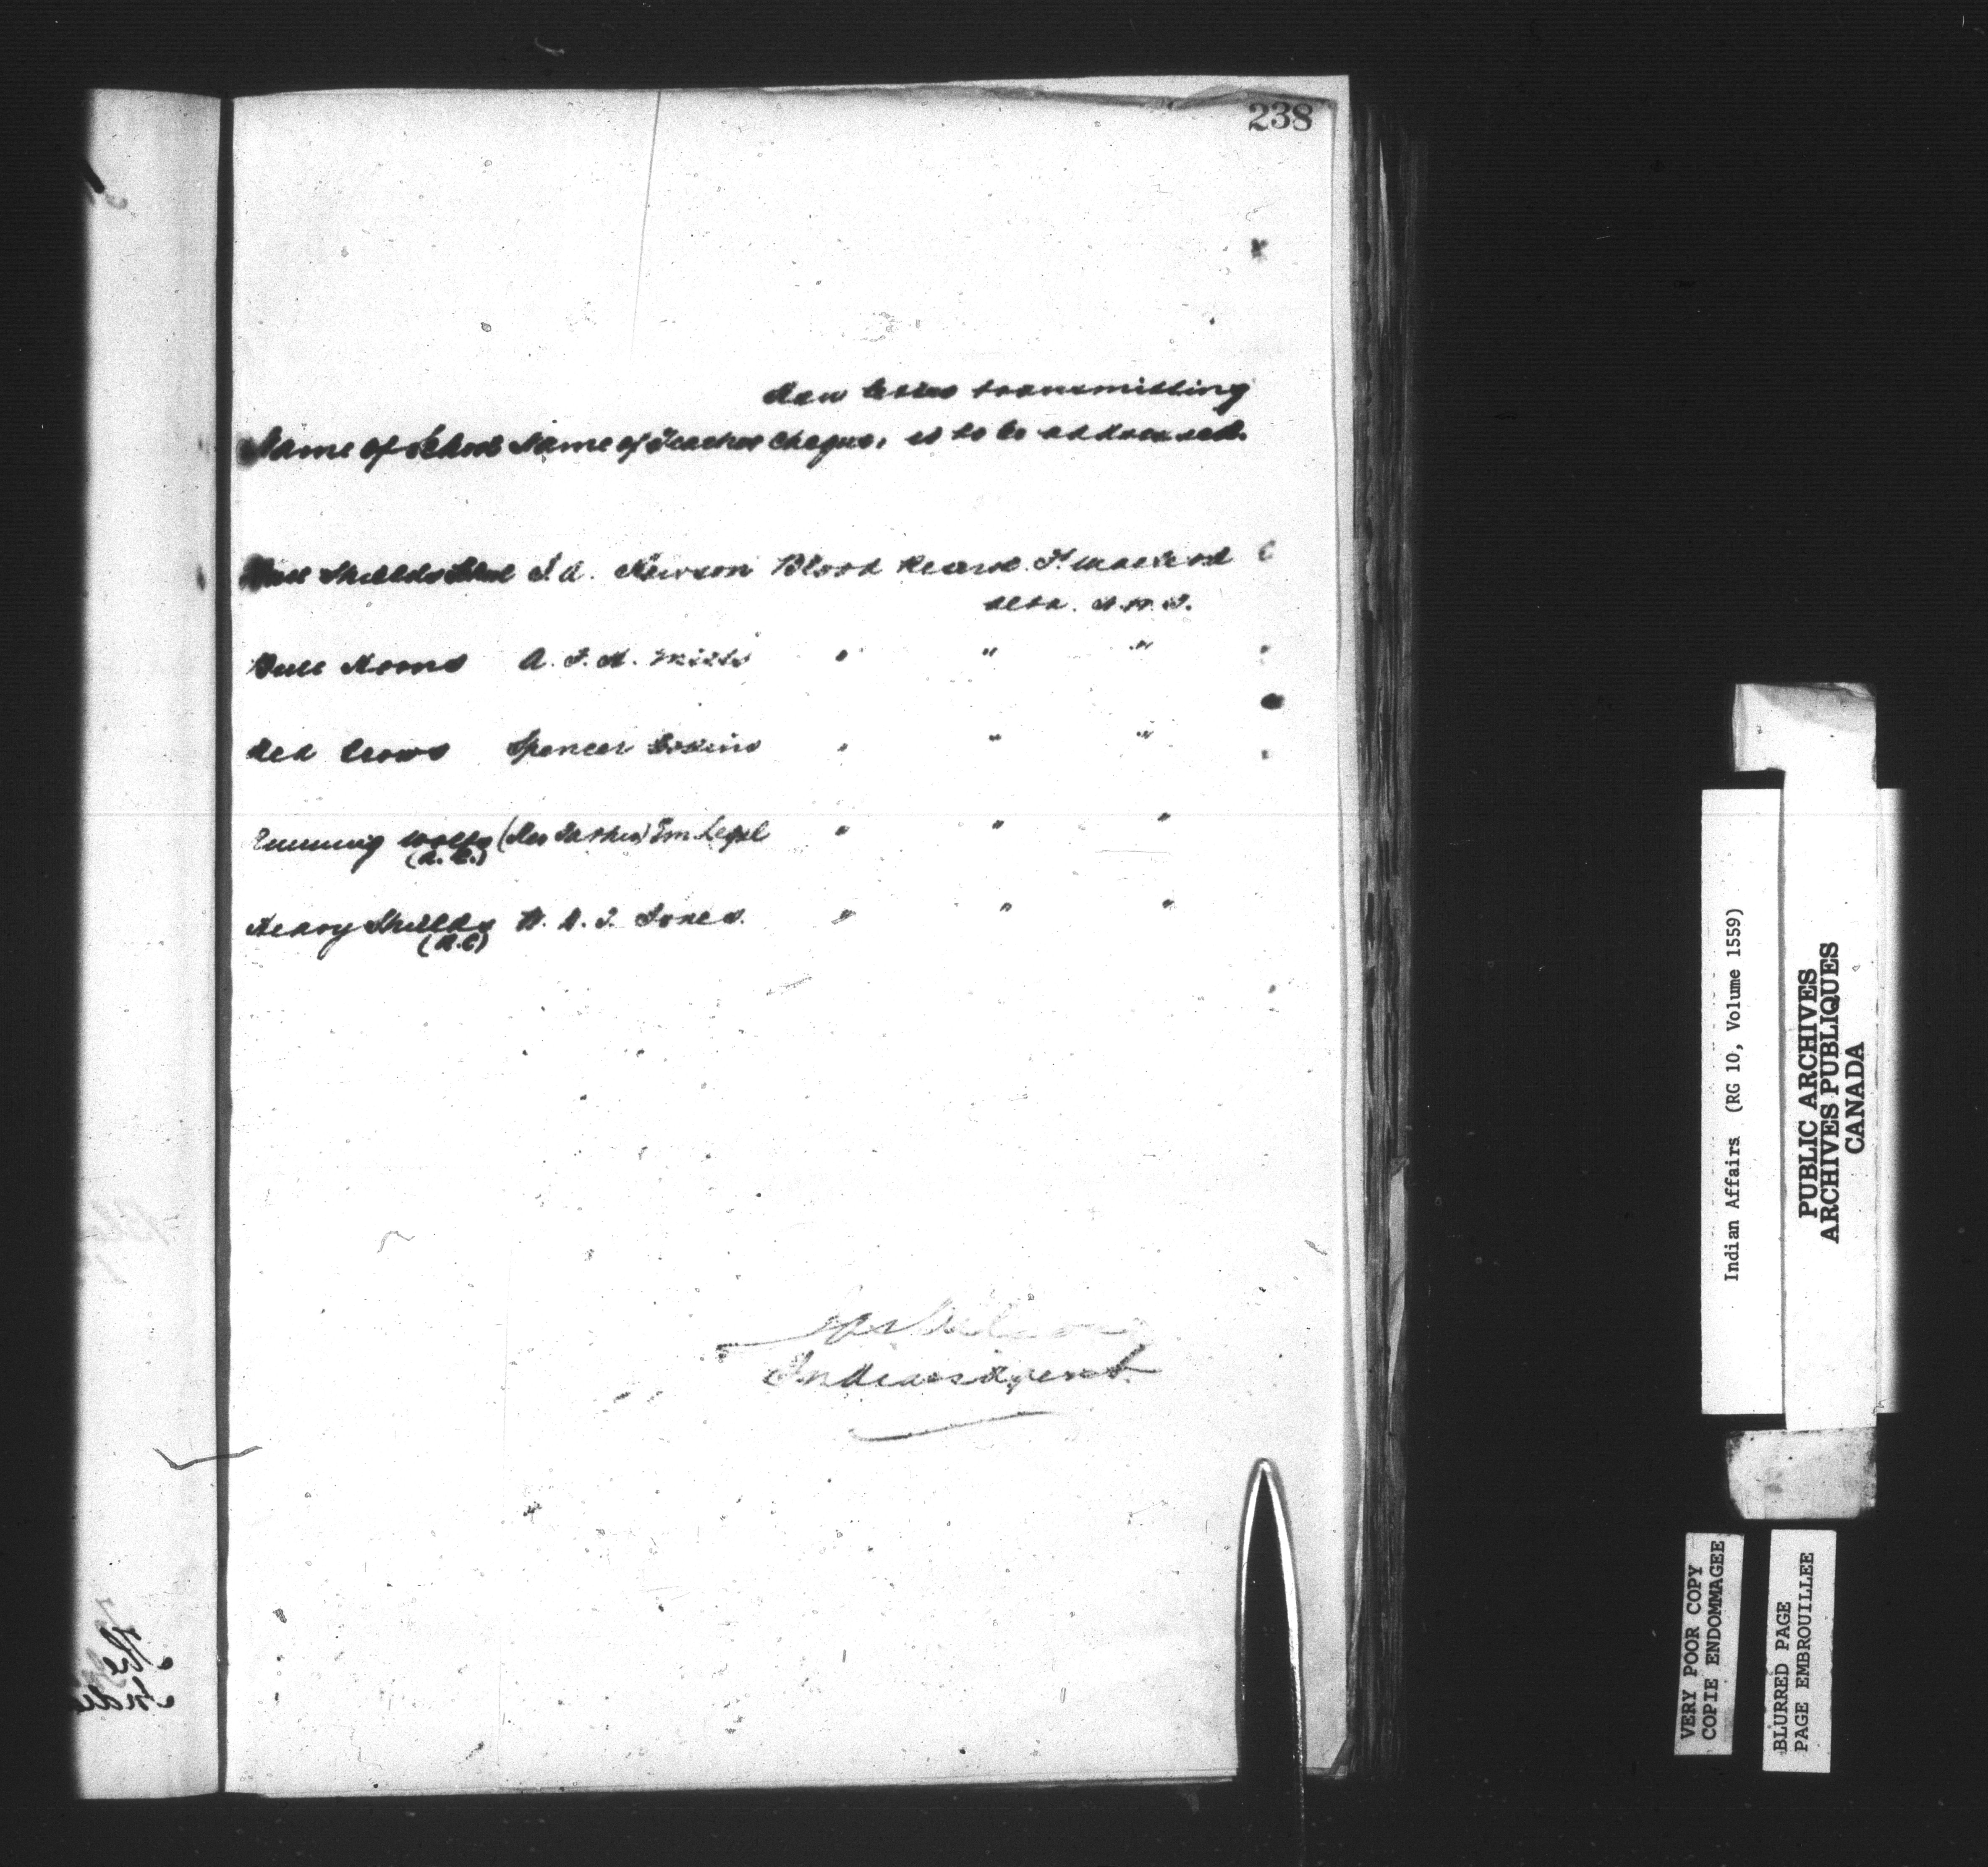 238
How letter transmitting
Name of School Name of Teacher Cheque, is to be addressed.
Bull Shields School J. A. Newson Blood Reserve. McLeod
Alta. N.W.T.
Bull Horns A. F. H. Mills " " "
Red Crows Spencer " " "
Running Wolfs (Rev Father) Em Legal " " "
(R.C.)
Heavy Shields W. S. J. Jones. " " "
(R.C)
Jas Wilson
Indian Agent.
Indian Affairs (RG 10, Volume 1559)
PUBLIC ARCHIVES
ARCHIVES PUBLIQUES
CANADA
VERY POOR COPY
COPIE ENDOMMAGEE
BLURRED PAGE
PAGE EMBROUILLEE